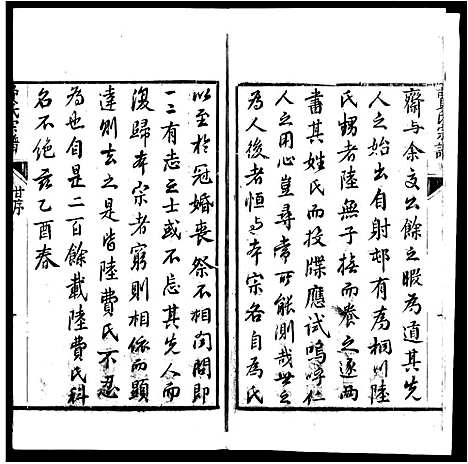 齋與余交公餘之暇為道其先
人之始出自射邨有為桐川陸
氏甥者陸無子撫而養之遂兩
書其姓氏而投牒應試嗚呼仁
人之用心豈尋常所能測哉世之
為人後者恒與本宗各自為氏
以至於冠婚喪祭不相問聞即
一二有志之士或不忘其先人而
復歸本宗者窮則相依而顯
達則去之是皆陸費氏不忍
為也自是二百餘載陸費氏科
名不絕茲乙酉春
氏宗譜
甘序
費氏宗譜